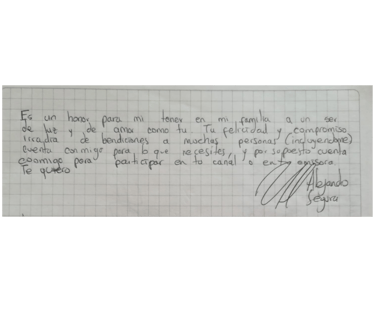 Es un honor para mi tener en mi familia a un ser
de luz y de amor como tu. Tu felicidad y compromiso
irradia de bendiciones a muchas personas (incluyendome)
cuenta conmigo para lo que necesites, y por supuesto cuenta
conmigo para participar en tu canal o en tu emisora.
Te quiero
Alejandro
Segura